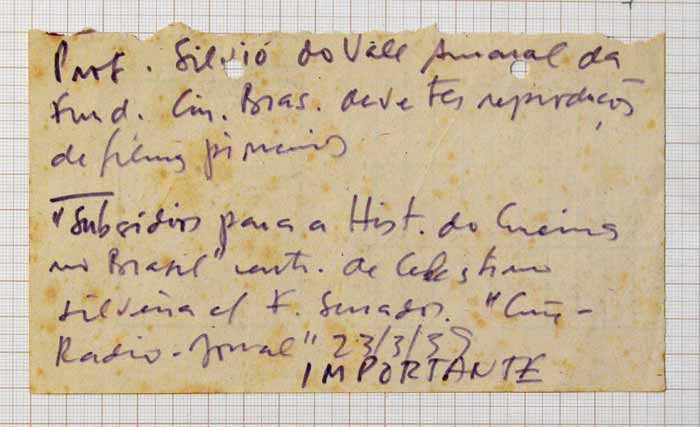 Prof. Silvió do Valle Amaral da
Fund. Cin. Bras. deve ter reproduções
de filmes pioneiros
"Subsídios para a Hist. do Cinema
no Brasil" entr. de Celestino
Silveira c/ F. Serrador. "Cine-
Radio-Jornal" 23/3/39
IMPORTANTE